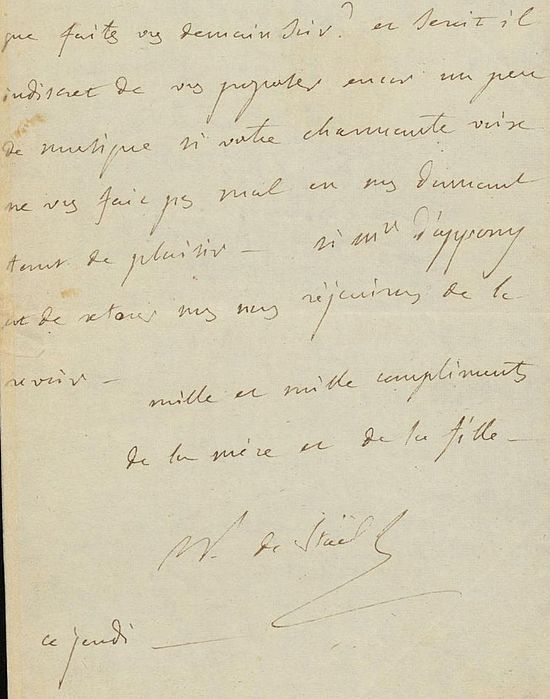 que faites vs demain soir? et seroit il
indiscret de vs proposer encor un peu
de musique si votre charmante voix
ne vs fait pas mal en ns donnant
tant de plaisir — si mr d'appony
est de retour ns nous réjouirons de le
revoir —
mille et mille compliments
de la mère et de la fille —
N. de Staël
ce jeudi —